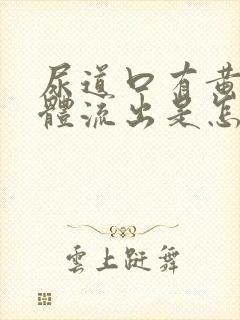 尿道口有黃
體流出是怎
雲上跹舞